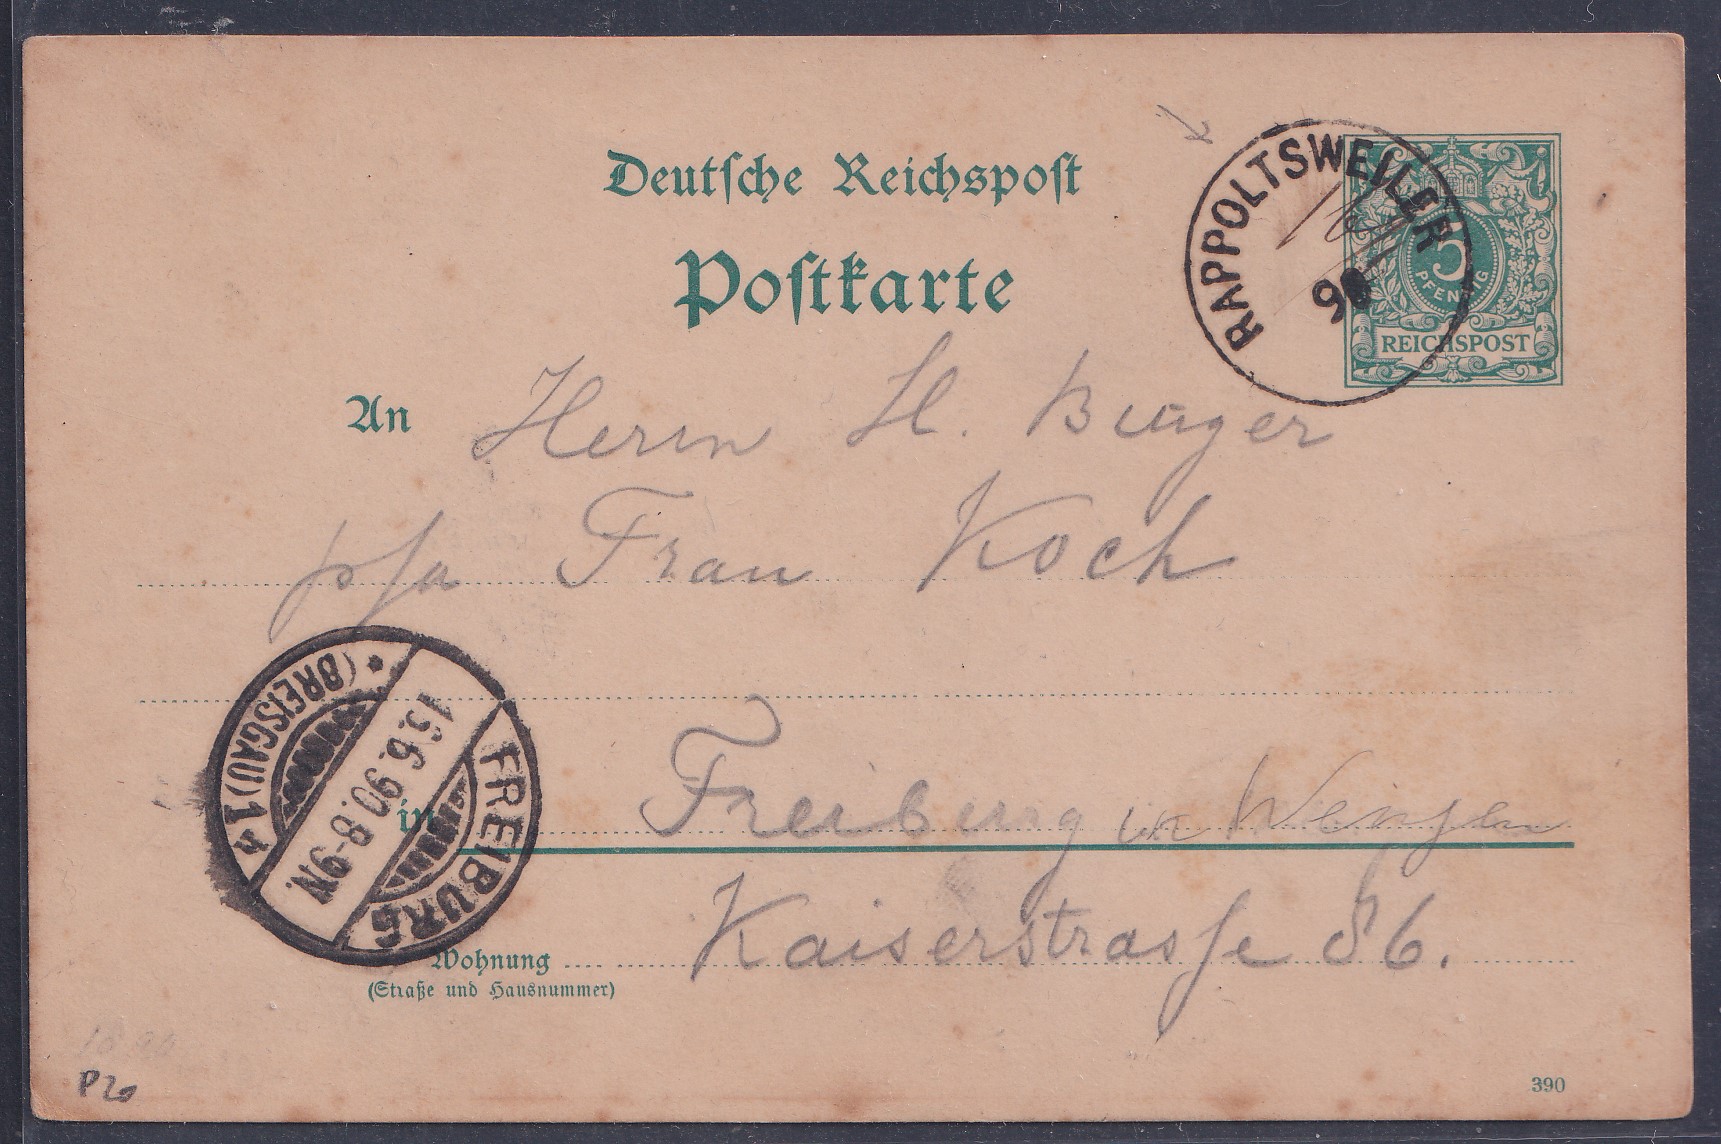 Deutsche Reichspost
Postkarte
RAPPOLTSWEILER
90
5
PFENNIG
REICHSPOST
An Herrn H. Burger
p/a Frau Koch
FREIBURG
(BREISGAU) 1
15.6.90.8-9N.
in Freiburg in
Wohnung Kaiserstrasse 86.
(Straße und Hausnummer)
P20
390